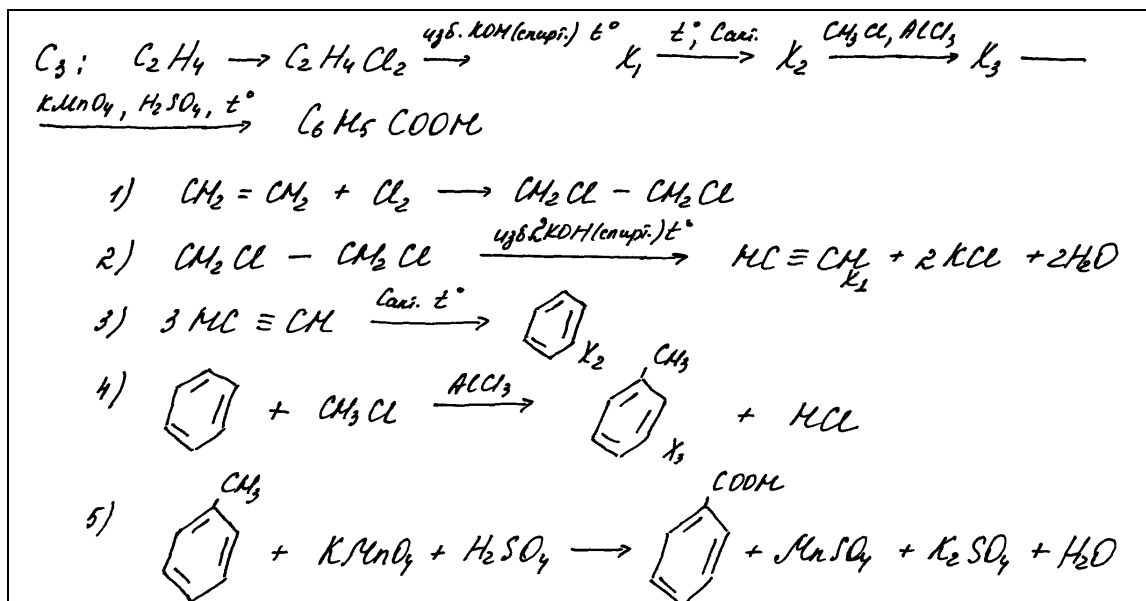 C3: C2H4 → C2H4Cl2 изб. KOH(спирт.) t° → X1 t°, Cакт. → X2 CH3Cl, AlCl3 → X3 —
KMnO4, H2SO4, t° → C6H5COOH
1) CH2 = CH2 + Cl2 → CH2Cl – CH2Cl
2) CH2Cl – CH2Cl изб. 2KOH(спирт.) t° → HC ≡ CH X1 + 2KCl + 2H2O
3) 3HC ≡ CH Cакт. t° → X2
4) + CH3Cl AlCl3 → CH3 X3 + HCl
5) CH3 + KMnO4 + H2SO4 → COOH + MnSO4 + K2SO4 + H2O